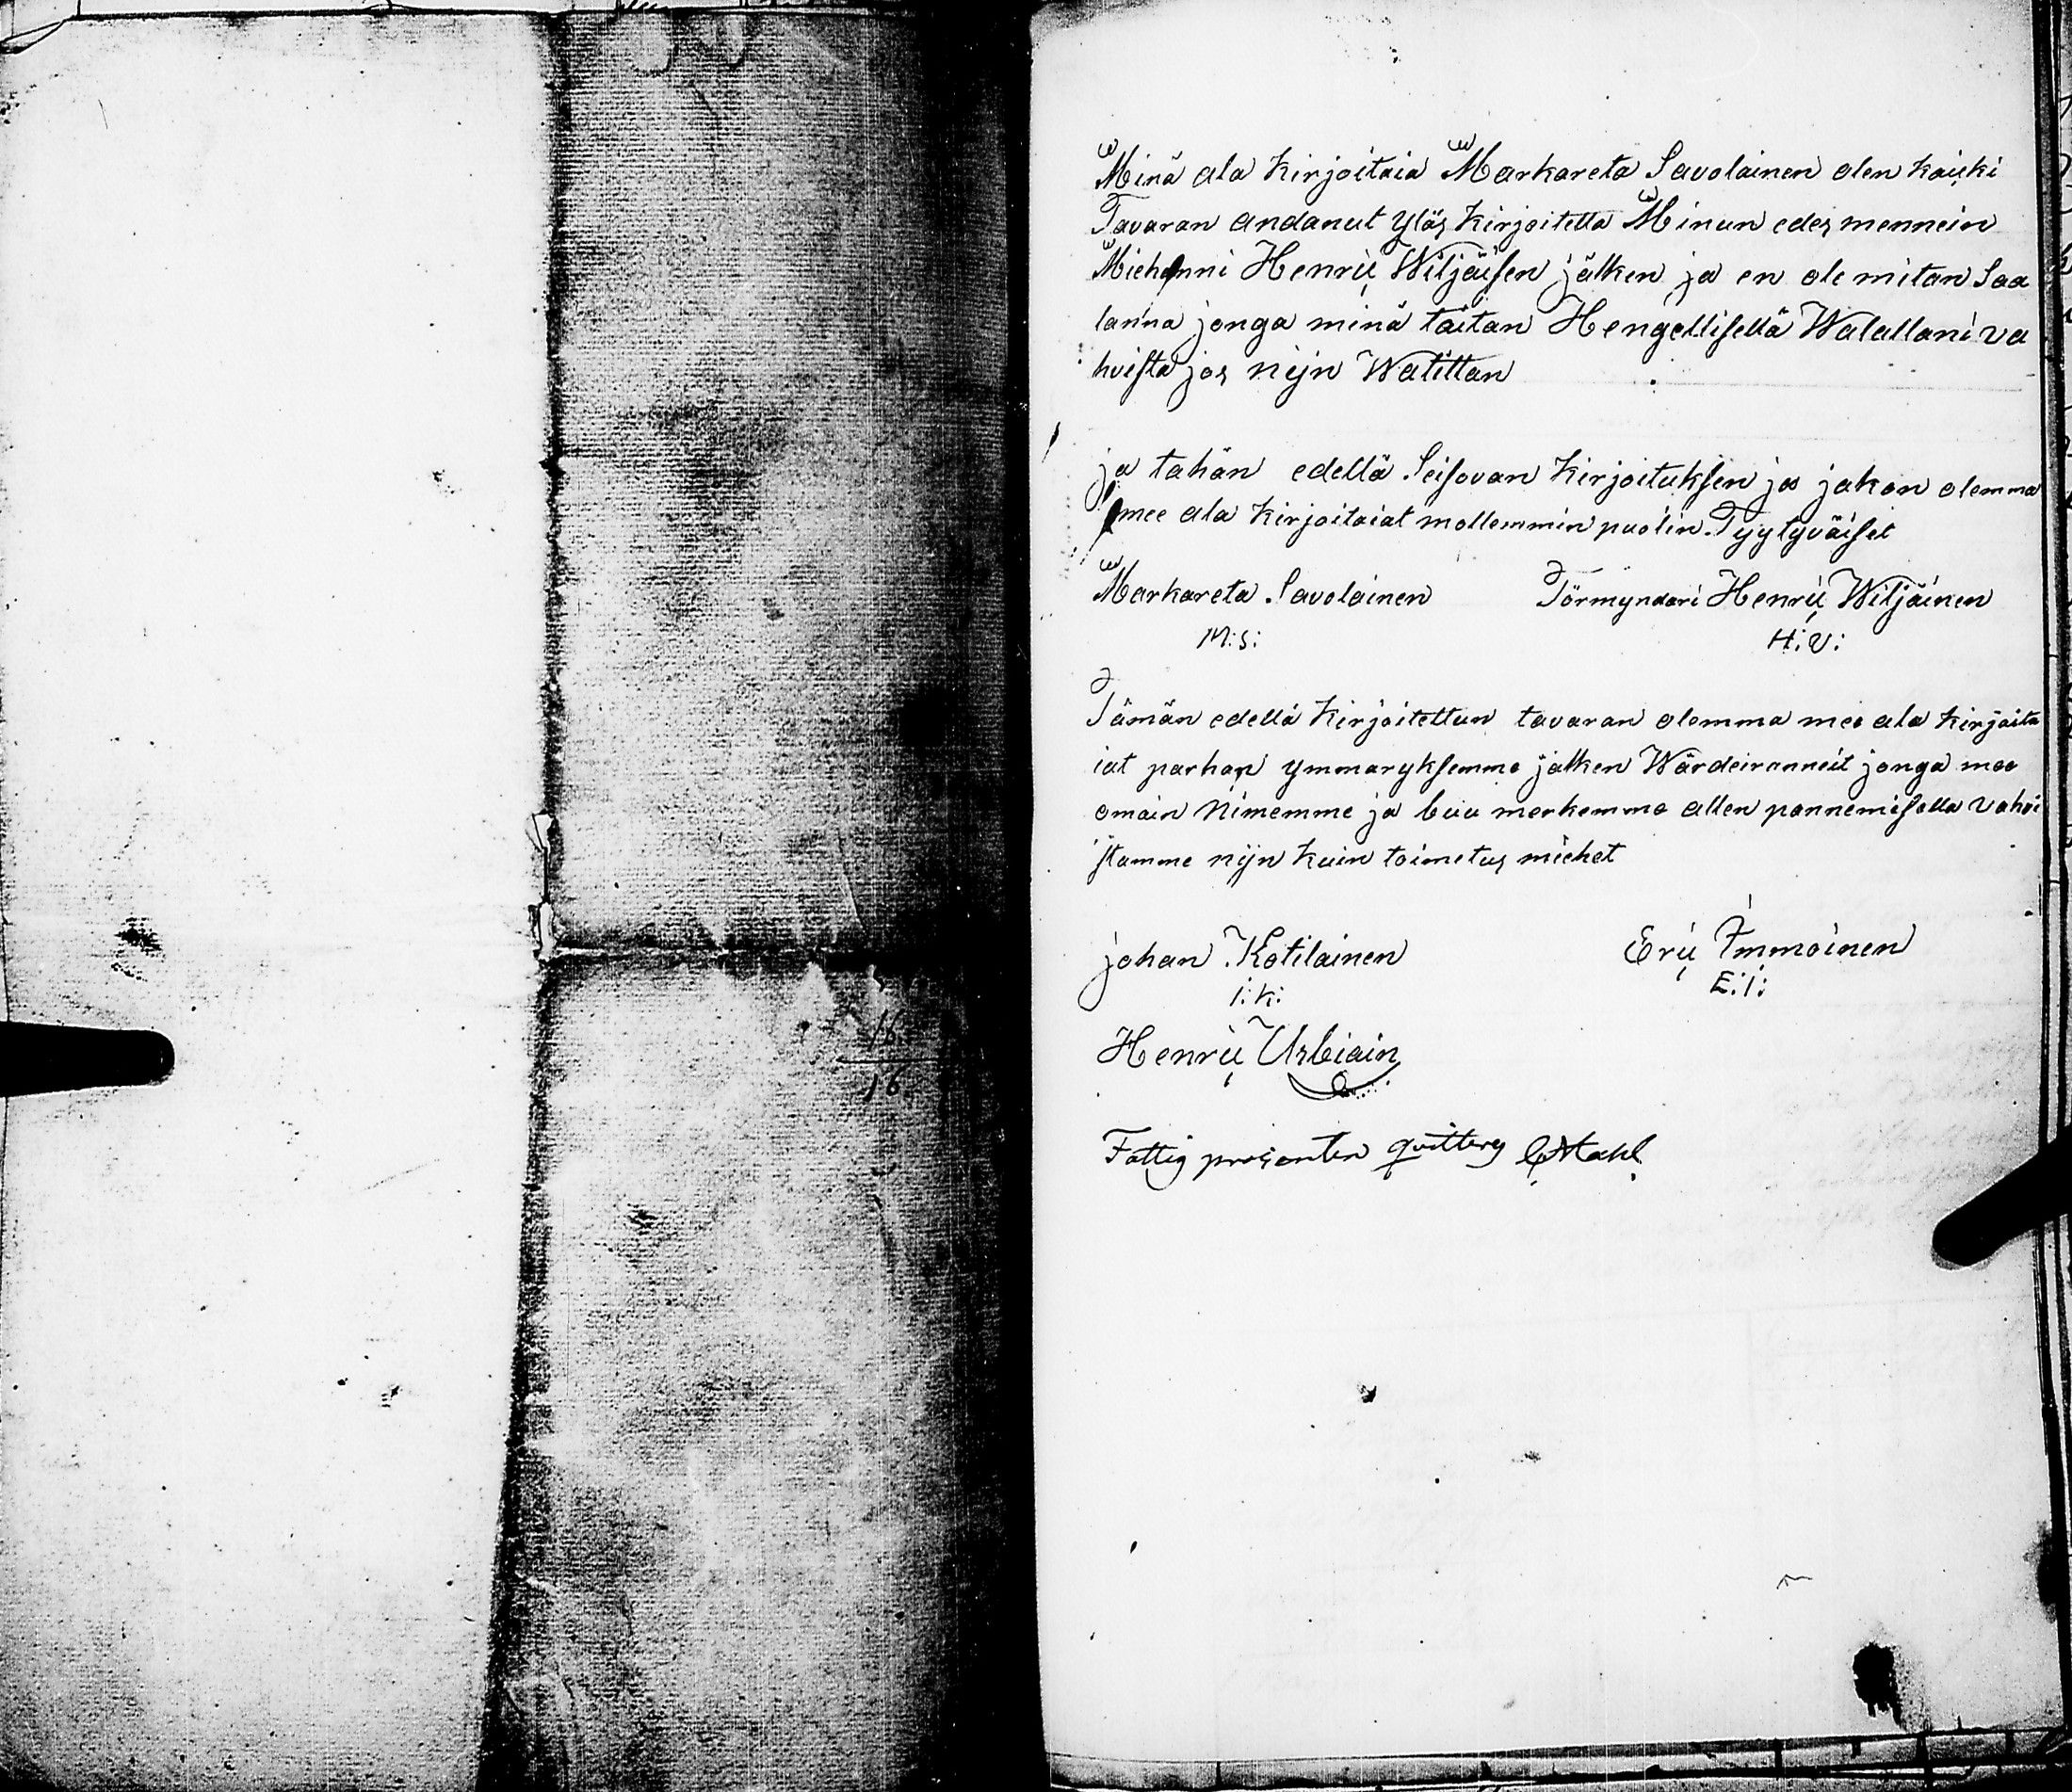 Minä ala Kirjoitaia Markareta Savolainen olen kaicki
Tavaran andanut Ylös Kirjoitetta Minun edes mennein
Miehenni Henrik Wiljäisen jälken ja en ole mitan Saa
lanna jonga minä taitan Hengellisellä Walallani va
hvista jos nijn Watittan
ja tahän edellä Seisovan Kirjoituksen ja jakon olemma
mee ala Kirjoitaiat mollemmin puolin Tyytyväiset
Markareta Savolainen Förmyndari Henrik Wiljäinen
M:S: H:V:
Tämän edellä Kirjoitettun tavaran olemma mee ala Kirjoita
iat parhan ymmaryksemme jalken Wärdeiranneit jonga mee
omain Nimemme ja buu merkemme allen pannemisella vahvi
stamme nijn kuin toimetus miehet
johan Kotilainen Erik Immoinen
I:K: E:I:
Henrik Usbiain
16
16
Fattig prosenten qvitteras